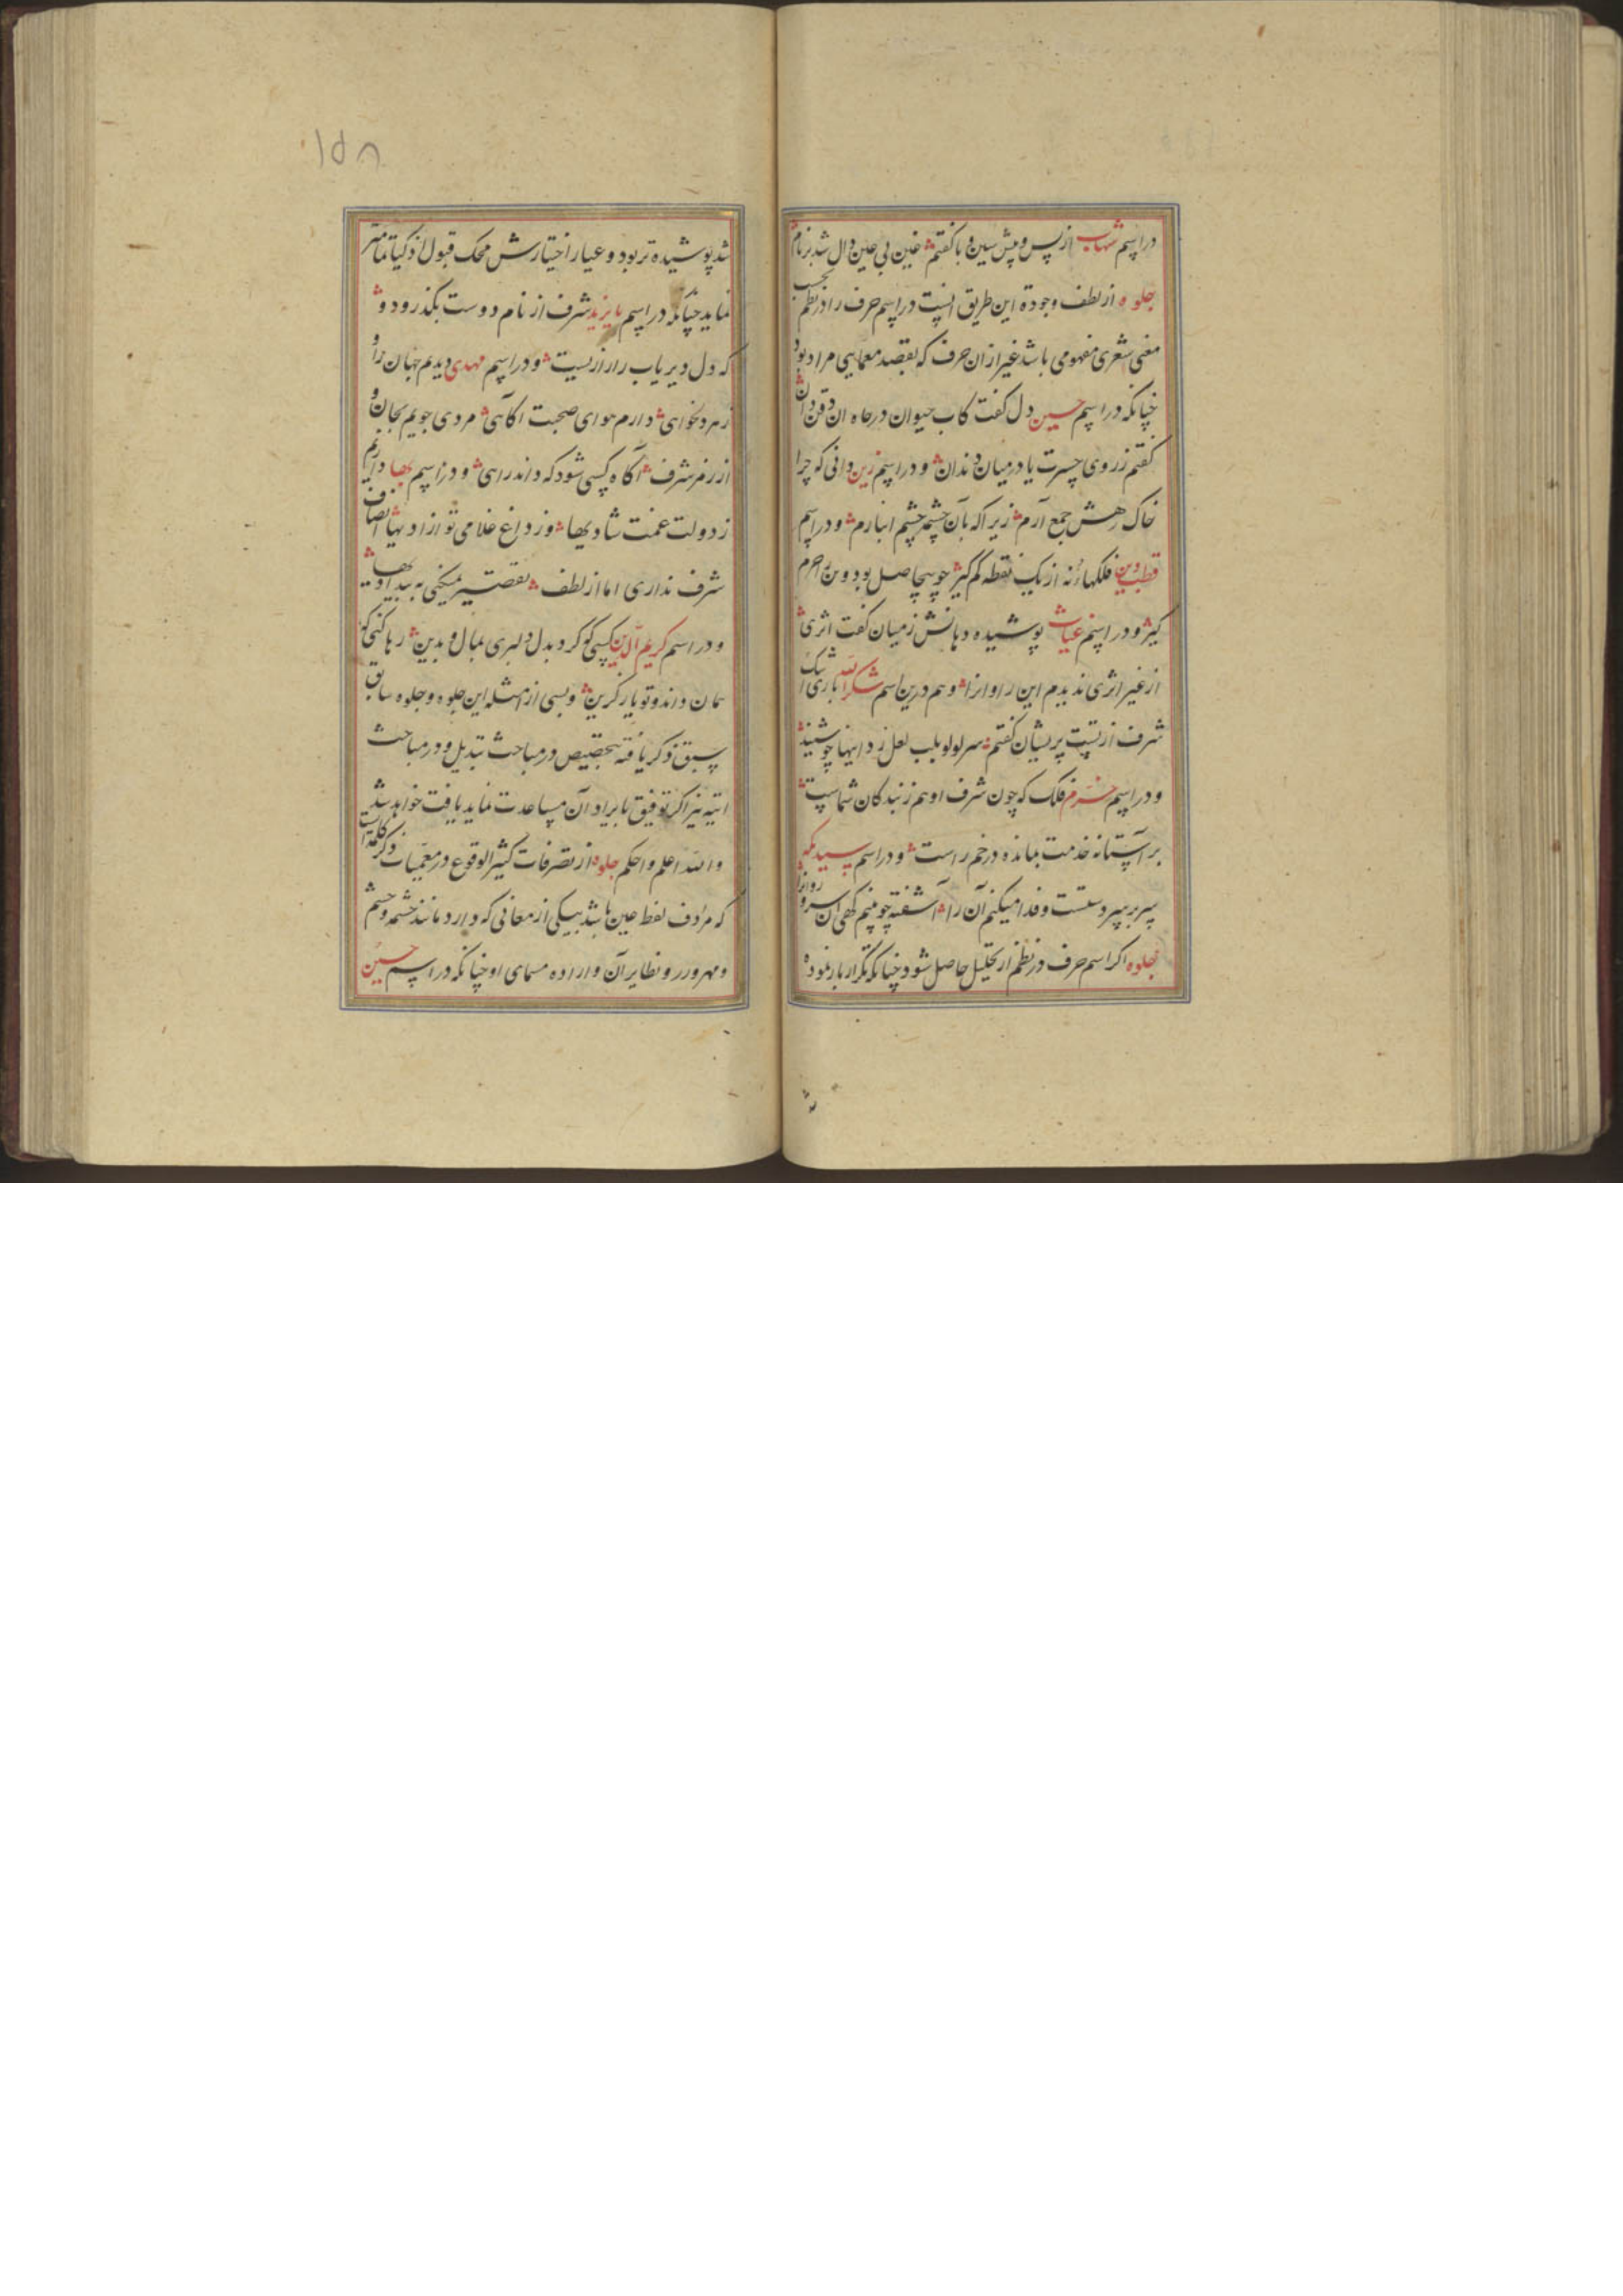 در اسم شهاب از پس و پیش سین و با گفتم غین بی عین دال شد بر نام
جلوه از لطف وجوه این طریق انست در اسم حرف را در نظم بحسب
معنی شعری مفهومی باشد غیر از ان حرف که بقصد معمایی مراد بود
چنانکه در اسم حسین دل گفت کاب حیوان در چاه ان ذقن دان
گفتم ز روی حسرت یا در میان دندان و در اسم زین دانی که چرا
خاک رهش جمع آرم زیرا که بآن چشمه چشم انبارم و در اسم
قطب دین فلکها نه از یک نقطه کم گیر چو بیحاصل بود
گیر و در اسم غیاث پوشیده دهانش ز میان گفت اثری
از غیر اثری ندیدم این را و انرا و هم درین اسم شکر الله باری
شرف از تست پریشان گفتم سر لولو بلب لعل زد اینها چو شنید
و در اسم خرم فلک که چون شرف او هم ز بندکان شماست
بر آستانه خدمت بمانده در خم راست و در اسم سیدیکه
سر بر سر دستست و فدا میکنم آن را آشفته چو بینم کهی آن سرو روانرا
جلوه اکر اسم حرف در نظم از تحلیل حاصل شود چنانکه تکرار بار نموده
۱۵۸
شد پوشیده تر بود و عیار اختیارش محک قبول اذکیا تمامتر
نماید چنانکه در اسم بایزید شرف از نام دوست بکذر و دو
که دل دیریاب راز از یست و در اسم مهدی دیدم جهان
ز مرد دارم هوای صحبت آکاهی مردی جویم بجان و
از رمز شرف آکاه کسی شود که داند راهی و در اسم بها دارم
ز دولت غمت شادیها وز داغ غلامی تو ازادیها انصاف
شرف نداری اما از لطف تقصیر نمیکنی به بیدادیها
و در اسم کریم الدین کسی کو کرد بدل دلبری بمال و بدین رها کنی که
همان داند و تو یار کزین و بسی از امثله این جلوه و جلوه سابق
سبق ذکر یافته بتخصیص در مباحث تبدیل و در مباحث
اتیه نیز اکر توفیق بایراد آن مساعدت نماید یافت خواهد شد
والله اعلم و احکم جلوه از تصرفات کثیر الوقوع در معمیات ذکر کلمه است
که مرادف لفظ عین باشد بیکی از معانی که دارد مانند چشمه و چشم
و مهر و زر و نظایر آن و اراده مسمای او چنانکه در اسم حسین